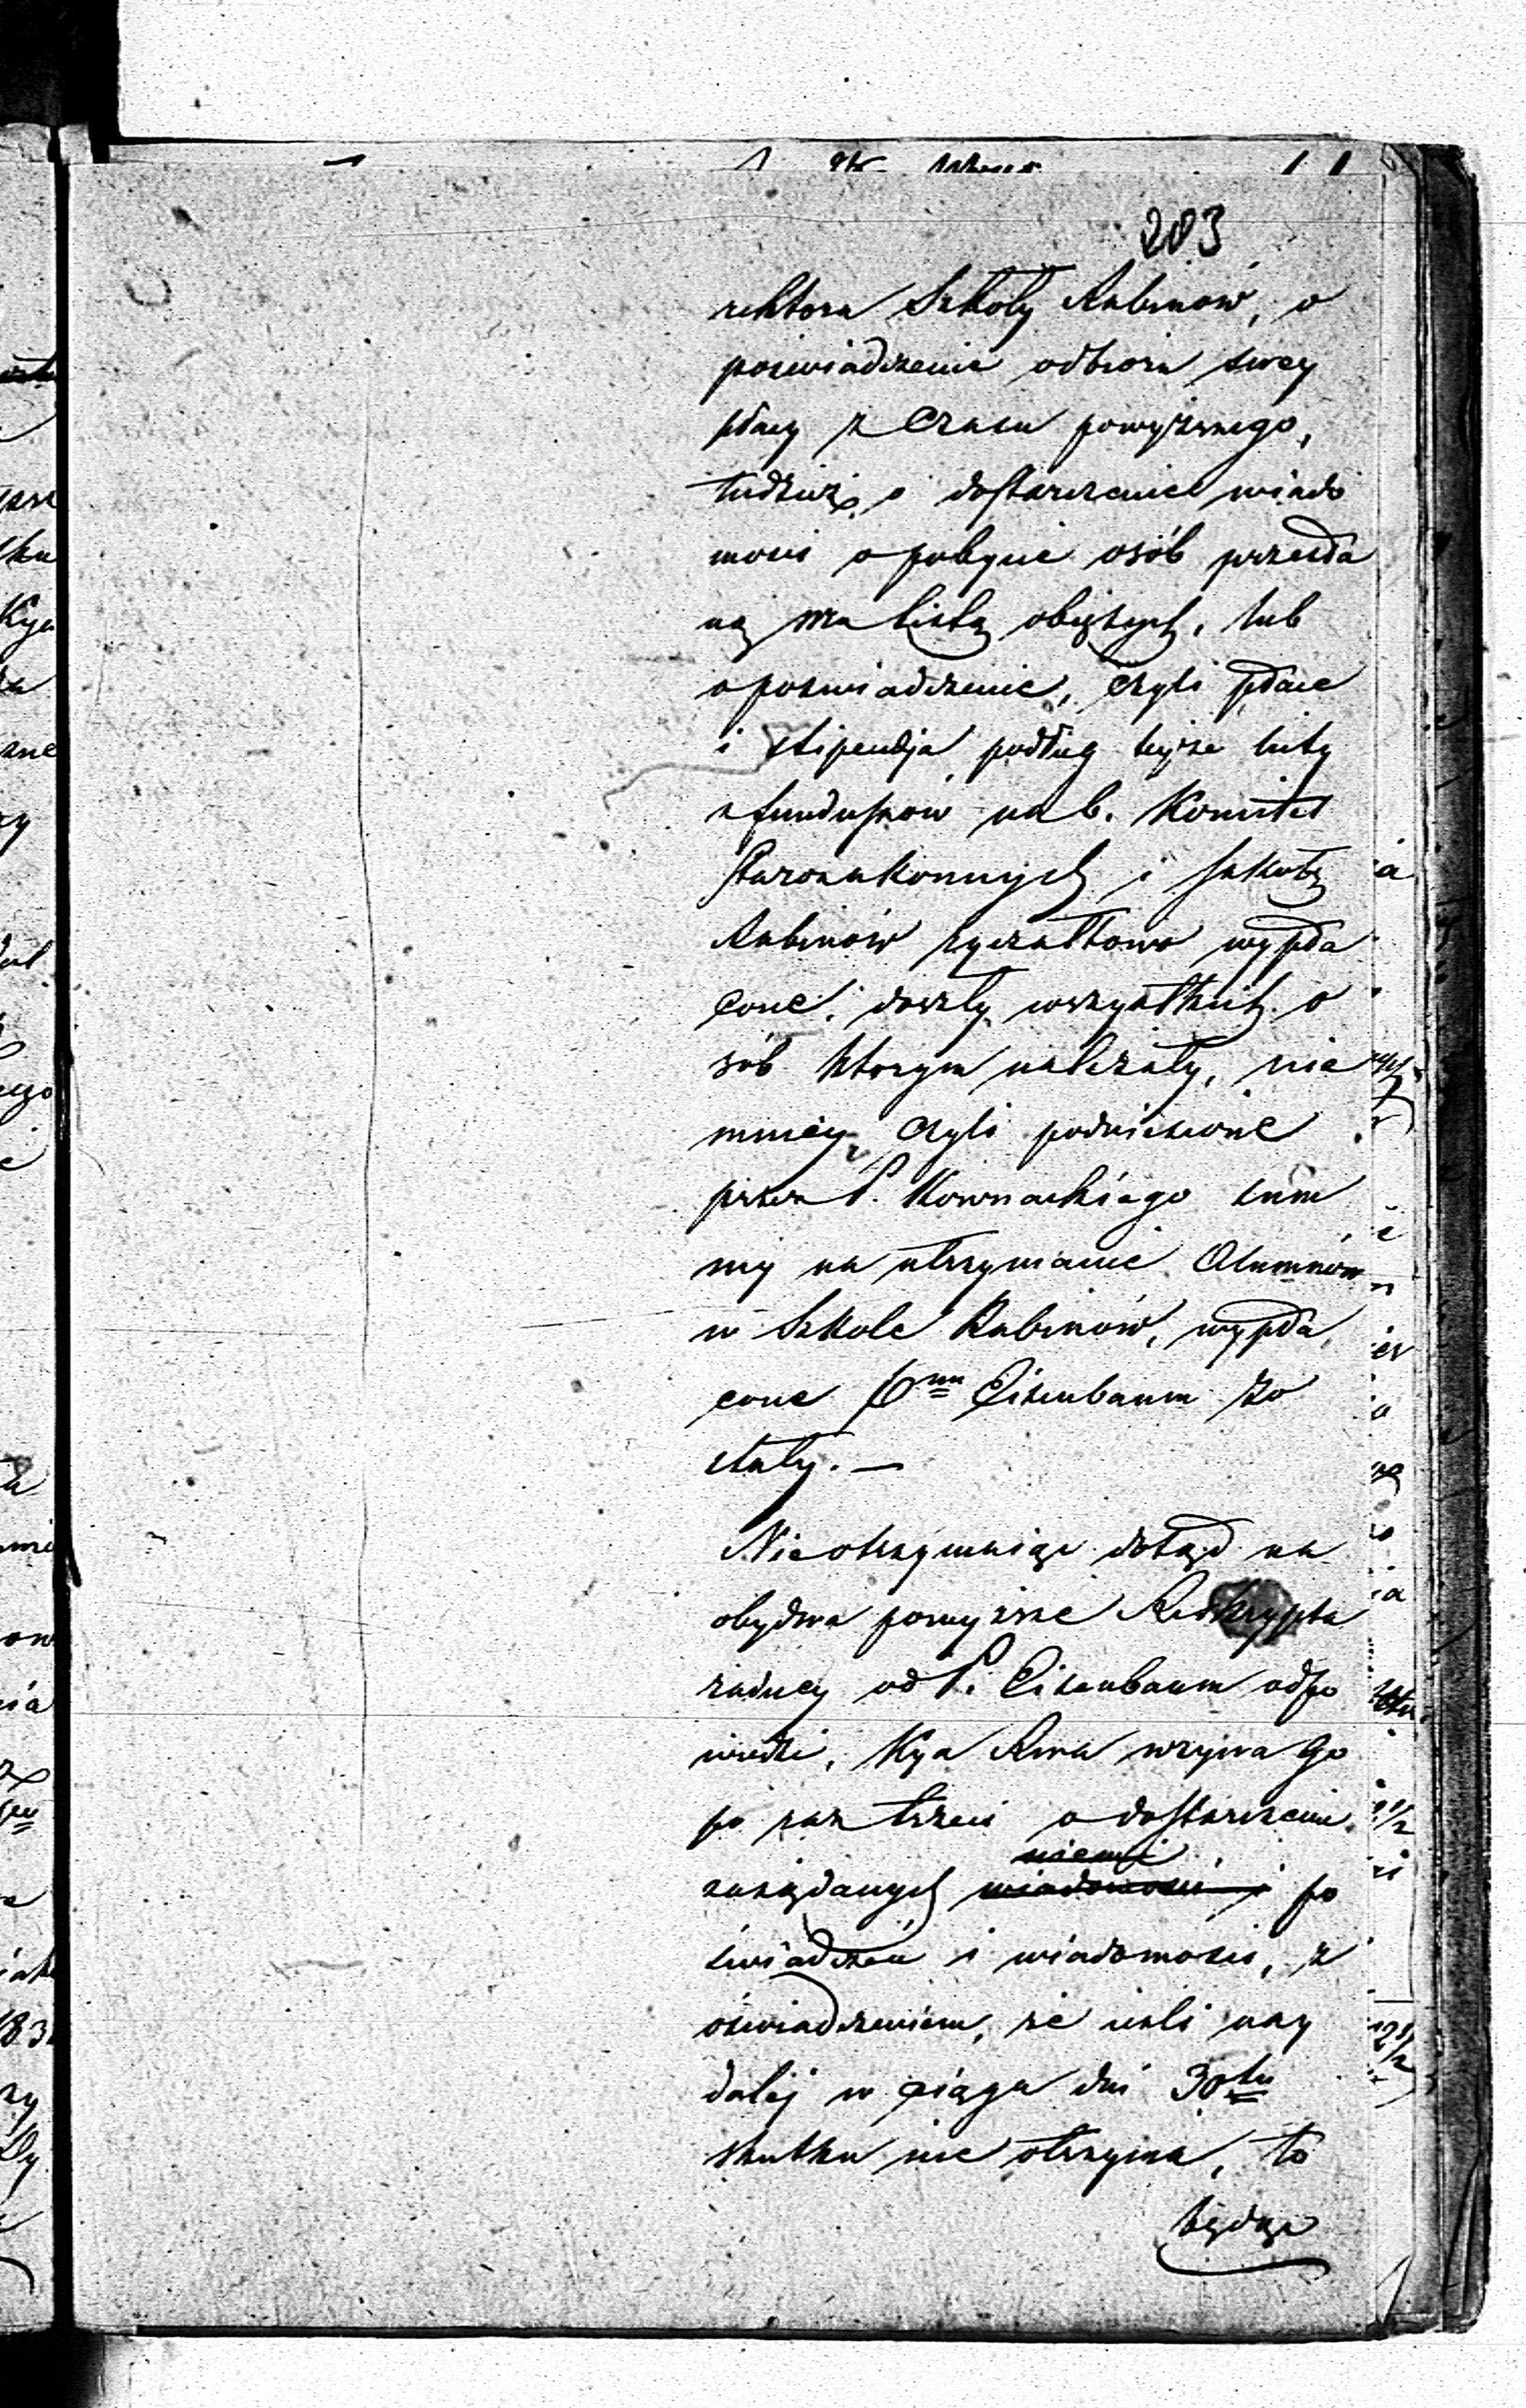 203
rektora Szkoły Rabinów, o
poswiadczenie odbioru swey
płacy z czasu powyższego,
tudzież o dostarczenie wiado
mosci o pobycie osób przesła
ną mu listą objętych, lub
o poswiadczenie, czyli płace
i stipendja podług teyże listy
z funduszow na b. Komitet
Starozakonnych i szkołę
Rabinów ryczałtowo wypła
cone, doszły wszystkich o
sób którym należały, nie
mniey czyli podniesione
przez P. Kownackiego sum
my na utrzymanie Alumnów
w Szkole Rabinów, wypła
cone Pnu Eisenbaum zo
stały. —
Nieotrzymując dotąd na
obydwa powyższe Reskrypta
żadney od P. Eisenbaum odpo
wiedzi, Kya Rwa wzywa go
po raz trzeci o dostarczenie
niemi
zażądanych wiadomosci i po
świadczeń i wiadomosci, z
oświadczeniem, że jeśli nay
daléj w ciągu dni 30tu
skutku nie otrzyma, to
będąc